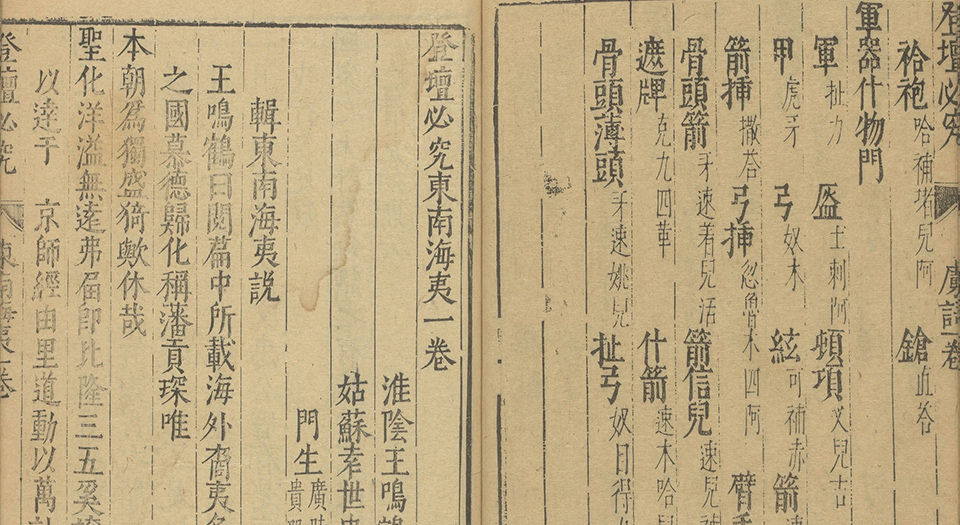 登壇必究 虜語 卷
袷袍 哈補堵兒阿 鎗
軍器什物門
軍 扯力 盔 士剌阿 頓項
甲 虎牙 弓 奴木 絃 可補赤 箭 速
箭挿 撒荅 弓挿 忽魯木四阿
骨頭箭 牙速着兒活 箭信兒 速兒
遮牌 克九四革 什箭 速木哈
骨頭薄頭 牙速姚兒 扯弓 奴日得
登壇必究東南海夷一卷
淮隂王鳴鶴
姑蘇
門生
輯東南海夷說
王鳴鶴曰閱篇中所載海外裔夷
之國慕德歸化稱藩貢琛唯
本朝爲獨盛猗歟休哉
聖化洋溢無遠弗屆卽比隆三五奚
以達于 京師經由里道動以萬
登壇必究 東南海夷 卷